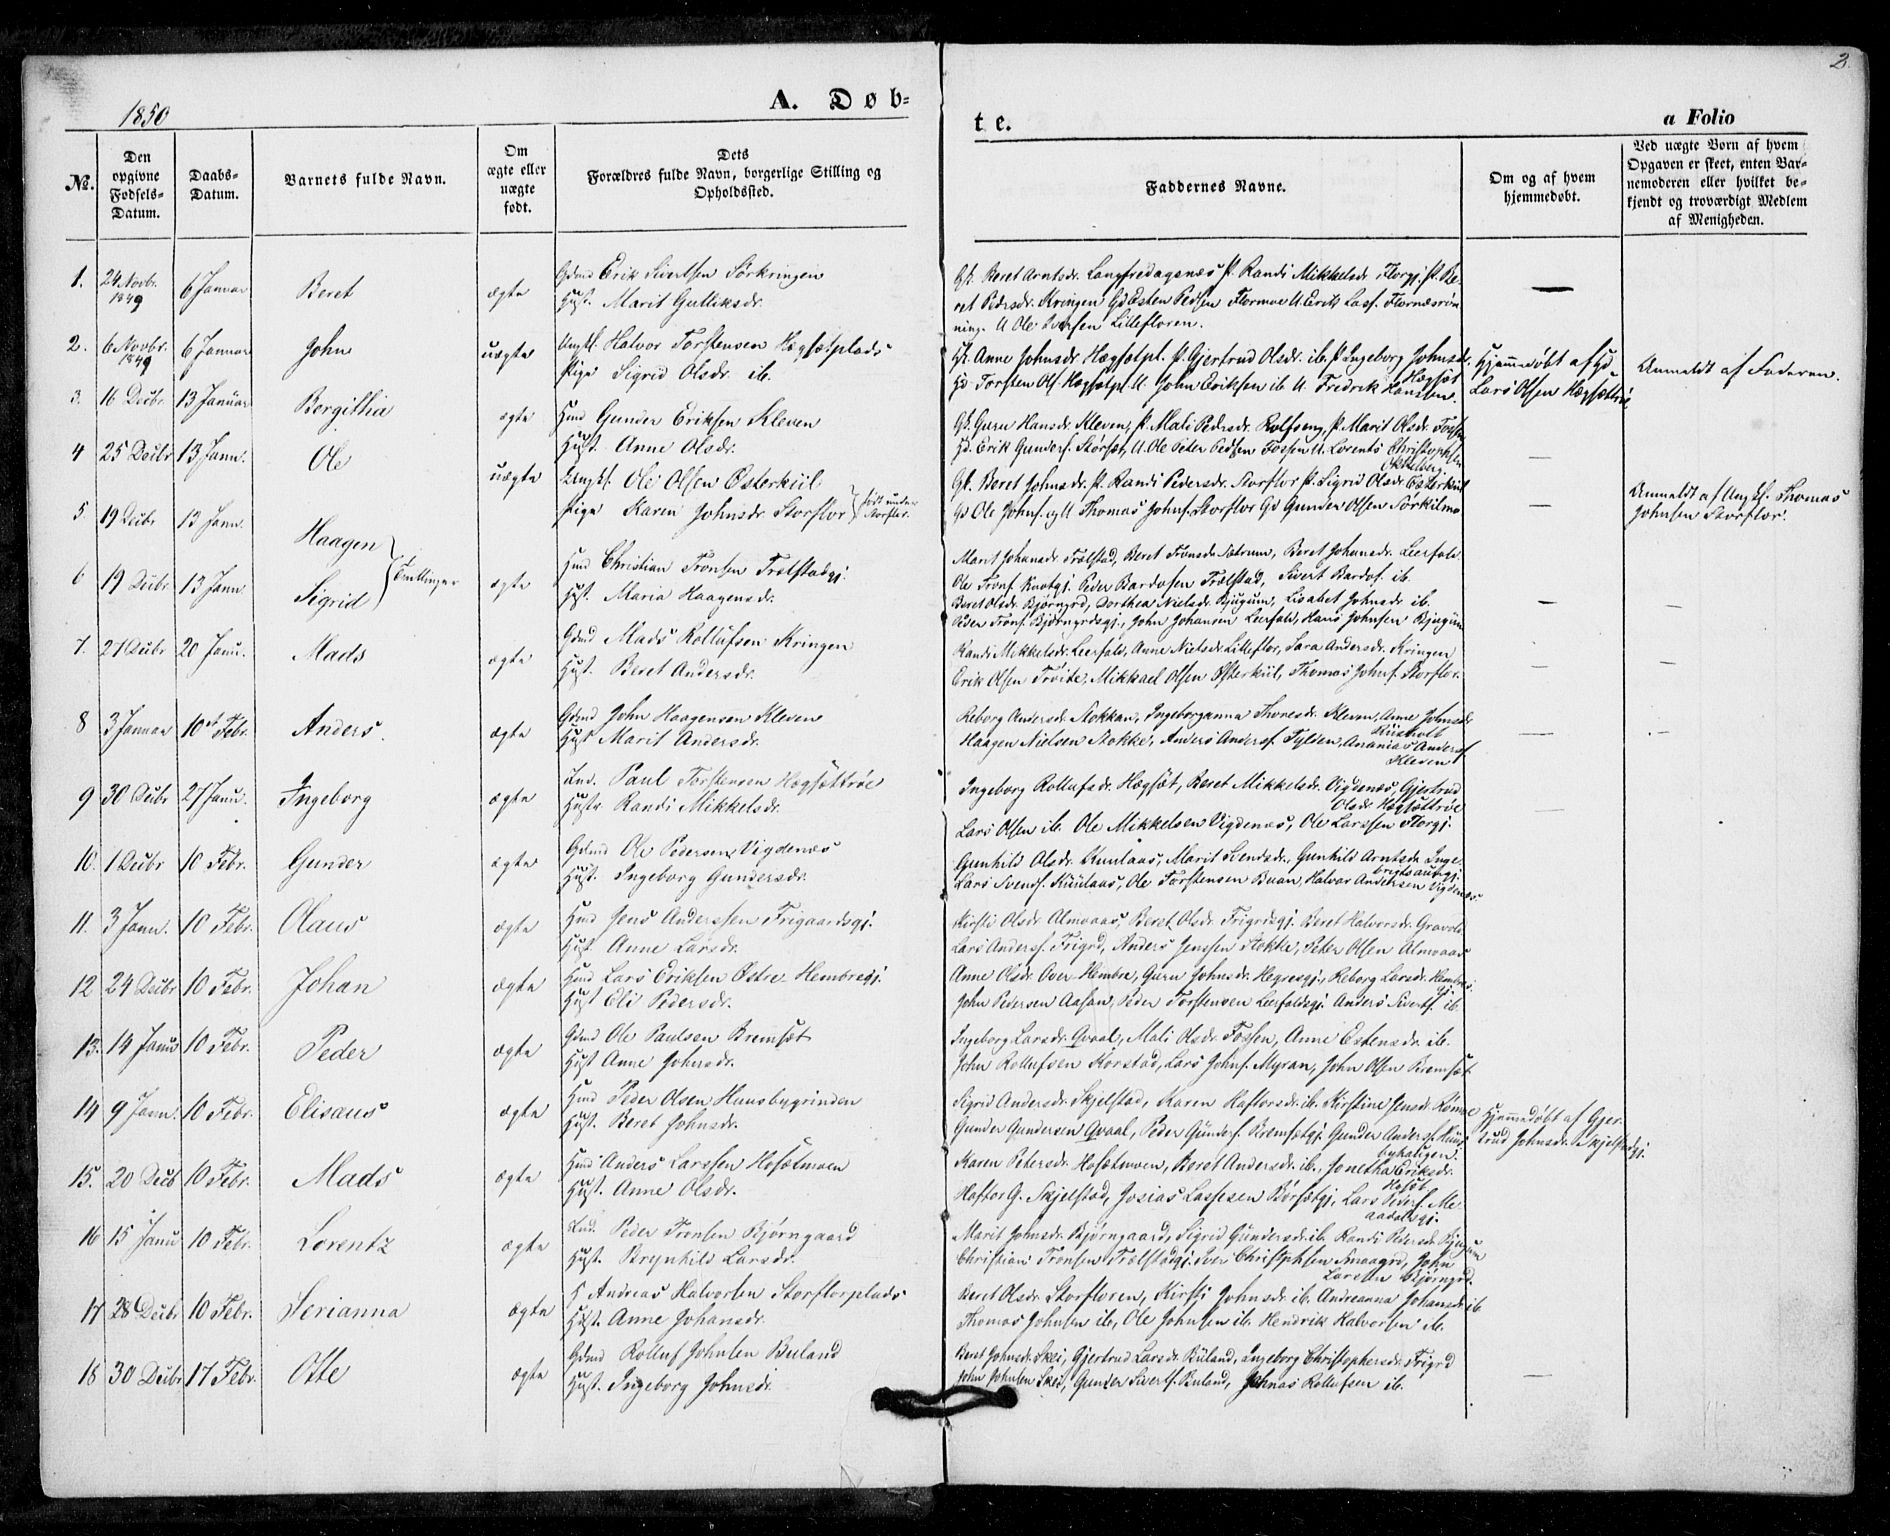 1850
A. Døb-
te.
a Folio
2
No.
Den opgivne Fødsels-Datum.
Daabs-Datum.
Barnets fulde Navn.
Om ægte eller uægte født.
Dets Forældres fulde Navn, borgerlige Stilling og Opholdssted.
Faddernes Navne.
Om og af hvem hjemmedøbt.
Ved uægte Born af hvem Opgaven er skeet, enten Barnemoderen eller hvilket bekjendt og troværdigt Medlem af Menigheden.
1. 24 Novbr. 1849 6 Januar Beret ægte Gdmd Erik Sivertsen Sørkringen
Hust. Marit Gulliksdr.
Gk. Beret Arntsdr. Langfredagsnæs P. Randi Mikkelsdr Florgj. P. Be-
ret Pedersdr. Kringen Gd Esten Pedsen Flormoe U. Erik Lass. Flornæsrøn-
ning. U Ole Iversen Lillefloren.
2. 6 Novbr. 1849 6 Januar John uægte Ungkl. Halvor Torstensen Hægsætplads
Pige Sigrid Olsdr. ib.
Gk. Anne Johnsdr Hægsætpl. P. Gjertrud Olsdr. ib. P. Ingeborg Johnsdr.
Hægsæt
Gd Torsten Ols. Hægsætpl. U. John Eriksen ib U. Fredrik Hansen.
Hjemmedøbt af Gd
Lars Olsen Hægsættrøe
Anmeldt af Faderen.
3. 16 Decbr. 13 Januar Bergithia ægte Hmd Gunder Eriksen Kleven
Hust. Anne Olsdr.
Gk. Guru Hansdr. Kleven, P. Mali Pedersdr. Rolfseng, P. Marit Olsdr. Fossen
Gd. Erik Gunders. Størsæt, U. Ole Peter Pedsen Fossen U. Lorents Christophsen
Okkelberg.
4 25 Decbr 13 Janu. Ole uægte Ungkl. Ole Olsen Østerkiil
Pige Karen Johnsdr. Storflor
født under Storflor.
Gk. Beret Johnsdr. P. Randi Pedersdr. Storflor P. Sigrid Olsdr Østerkiil
Gd Ole Johns. og U Thomas Johns. Storflor Gd Gunder Olsen Sørkilmo
Anmeldt af Ungk. Thomas
Johnsen Storflor.
5 19 Decbr 13 Janu. Haagen
6 19 Decbr 13 Janu. Sigrid
Tvillinger
ægte Hmd Christian Tronsen Trælstadgj.
Hust. Maria Haagensdr.
Marit Johansdr. Trælstad, Beret Tronsdr. Sætrum, Beret Johansdr. Leerfald.
Ole Trons. Kvotgj. Peder Bardosen Trælstad, Sivert Bardos. ib.
Beret Olsdr. Bjørngrd, Dorthea Nielsdr. Bjugum, Lisabet Johnsdr ib.
Peder Trons. Bjørngrdsgj., John Johansen Leerfald, Hans Johnsen Bjugum
7. 27 Decbr 20 Janu. Mads ægte Gdmd Mads Rollufsen Kringen
Hust. Beret Andersdr.
Randi Mikkelsdr. Leerfald, Anne Nielsdr. Lilleflor, Sara Andersdr. Kringen
Erik Olsen Troite, Mikkael Olsen Østerkiil, Thomas Johns. Storflor.
8 3 Januar 10de Febr. Anders. ægte Gdmd John Haagensen Kleven
Hust Marit Andersdr.
Reborg Andersdr. Stokkan, Ingeborganna Thoresdr. Kleven, Anne Johnsdr
Haagen Nielsen Stokke, Anders Anderss. Fylden, Ananias Anderss
Kleven
9 30 Decbr 27 Janu. Ingeborg ægte Ind. Paul Torstensen Hægsættrøe
Hustr Randi Mikkelsdr.
Ingeborg Rollufsdr. Hægsæt, Beret Mikkelsdr. Vigdenæs, Gjertrud
Olsdr Hægsættrøe
Lars Olsen ib. Ole Mikkelsen Vigdenæs, Ole Larssen Florgj.
10. 1 Decbr 10 Febr. Gunder ægte Gdmd Ole Pedersen Vigdenæs
Hust. Ingeborg Gundersdr.
Gunhild Olsdr. Kuulaas, Marit Svendsdr., Gunhild Arntsdr Inge-
Lars Svends. Kuulaas, Ole Torstensen Buan, Halvor Andersen Vigdenæs
11. 3 Janu. 10 Febr. Olaus ægte Hmd Jens Anderssen Frigaardsgj.
Hust. Anne Larsdr.
Kirsti Olsdr Almoaas, Beret Olsdr. Frigrdsgj. Beret Halvorsdr. Gravold.
Lars Anderss. Frigrd, Anders Jenssen Stokke, Peter Olsen Almoaas
12 24 Decbr 10 Febr. Johan ægte Hmd Lars Eriksen Østre Hembregj.
Hust Eli Pedersdr.
Anne Olsdr. Over Hembre, Guru Johnsdr. Hegresgj., Reborg Larsdr. Hembregj.
John Pedersen Aasan, Peder Torstensen Leerfaldsgj. Anders Siverts. ib.
13. 14 Janu 10 Febr. Peder ægte Gdmd Ole Paulsen Bremsæt
Hust Anne Johnsdr.
Ingeborg Larsdr. Qvaal, Mali Olsdr. Fossen, Anne Estensdr. ib.
John Rollufsen Korstad, Lars Johns. Myran, John Olsen Bremsæt
14 9 Janu. 10 Febr. Elisæus ægte Hmd Peder Olsen Huusbygrinden
Hust. Beret Johnsdr.
Sigrid Andersdr. Skjelstad, Karen Haftorsdr. ib. Kirstine Jensdr. Rømo
Gunder Gundersen Qvaal, Peder Gunders. Bremsætgj. Gunder Anderss. Huus-
byhaugen.
Hjemmedøbt af Gjer-
trud Johnsdr. Skjelstadgj.
15. 20 Decb 10 Febr. Mads ægte Hmd Anders Larssen Hofætmoen
Hust. Anne Olsdr.
Karen Petersdr. Hofætmoen, Beret Andersdr. ib., Jonetha Eriksdr.
Hofæt
Haftor G. Skjelstad, Josias Lassesen Børsætgj, Lars Peders. Me-
aadalsgj.
16 15 Janu 10 Febr. Lorentz ægte Ind. Peder Tronsen Bjørngaard
Hust. Brynhild Larsdr.
Marit Johnsdr. Bjørngaard, Sigrid Gundersdr. ib. Randi Pedersdr. Bjugum
Christian Tronsen Trælstadgj. Iver Christophsen Smaagrd, John
Larsen Bjørngrd.
17 28 Decbr 10 Febr. Serianna ægte H Andreas Halvorsen Storflorplads
Hust. Anne Johansdr.
Beret Olsdr Storfloren, Kirsti Johnsdr. ib. Andreanna Johansdr. ib
Thomas Johnsen ib, Ole Johnsen ib. Hendrik Halvorsen ib.
18 30 Decbr 17 Febr. Otte ægte Gdmd Rolluf Johnsen Buland
Hust. Ingeborg Johnsdr.
Beret Johnsdr. Skei, Gjertrud Larsdr. Buland, Ingeborg Christophersdr. Frigrd
John Johnsen Skei, Gunder Siverts. Buland, Johnas Rollufsen ib.